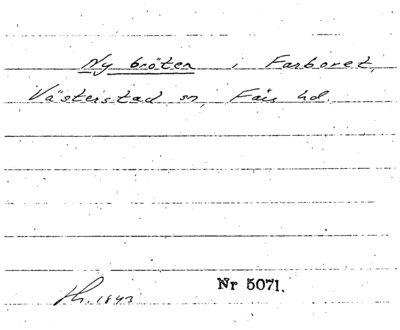 Ny bröten i Farboret,
Västerstad sn, Färs hd.
Nr 5071.